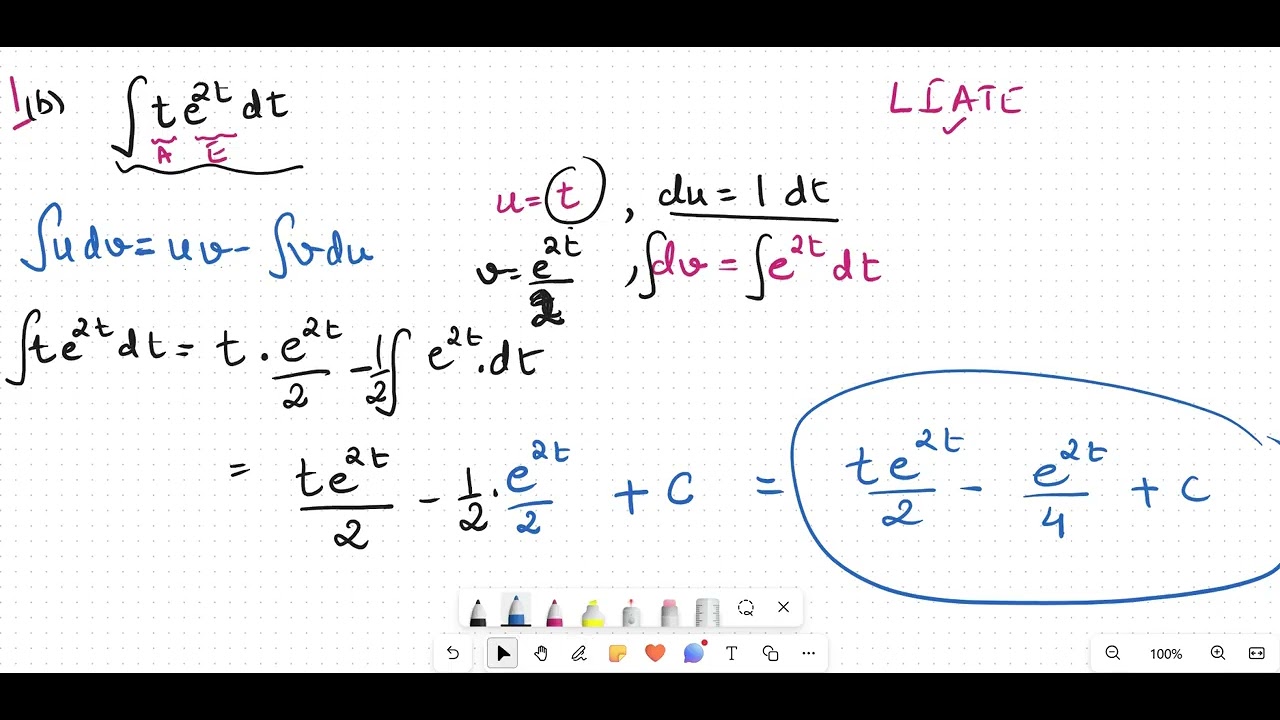 1(b) ∫ t e^{2t} dt
LIATE
A E
u = t , du = 1 dt
∫u dv = uv - ∫v du
v = e^{2t}/2 , ∫dv = ∫e^{2t} dt
∫te^{2t} dt = t · e^{2t}/2 - 1/2 ∫ e^{2t} . dt
= te^{2t}/2 - 1/2 · e^{2t}/2 + C = te^{2t}/2 - e^{2t}/4 + C
T
100%